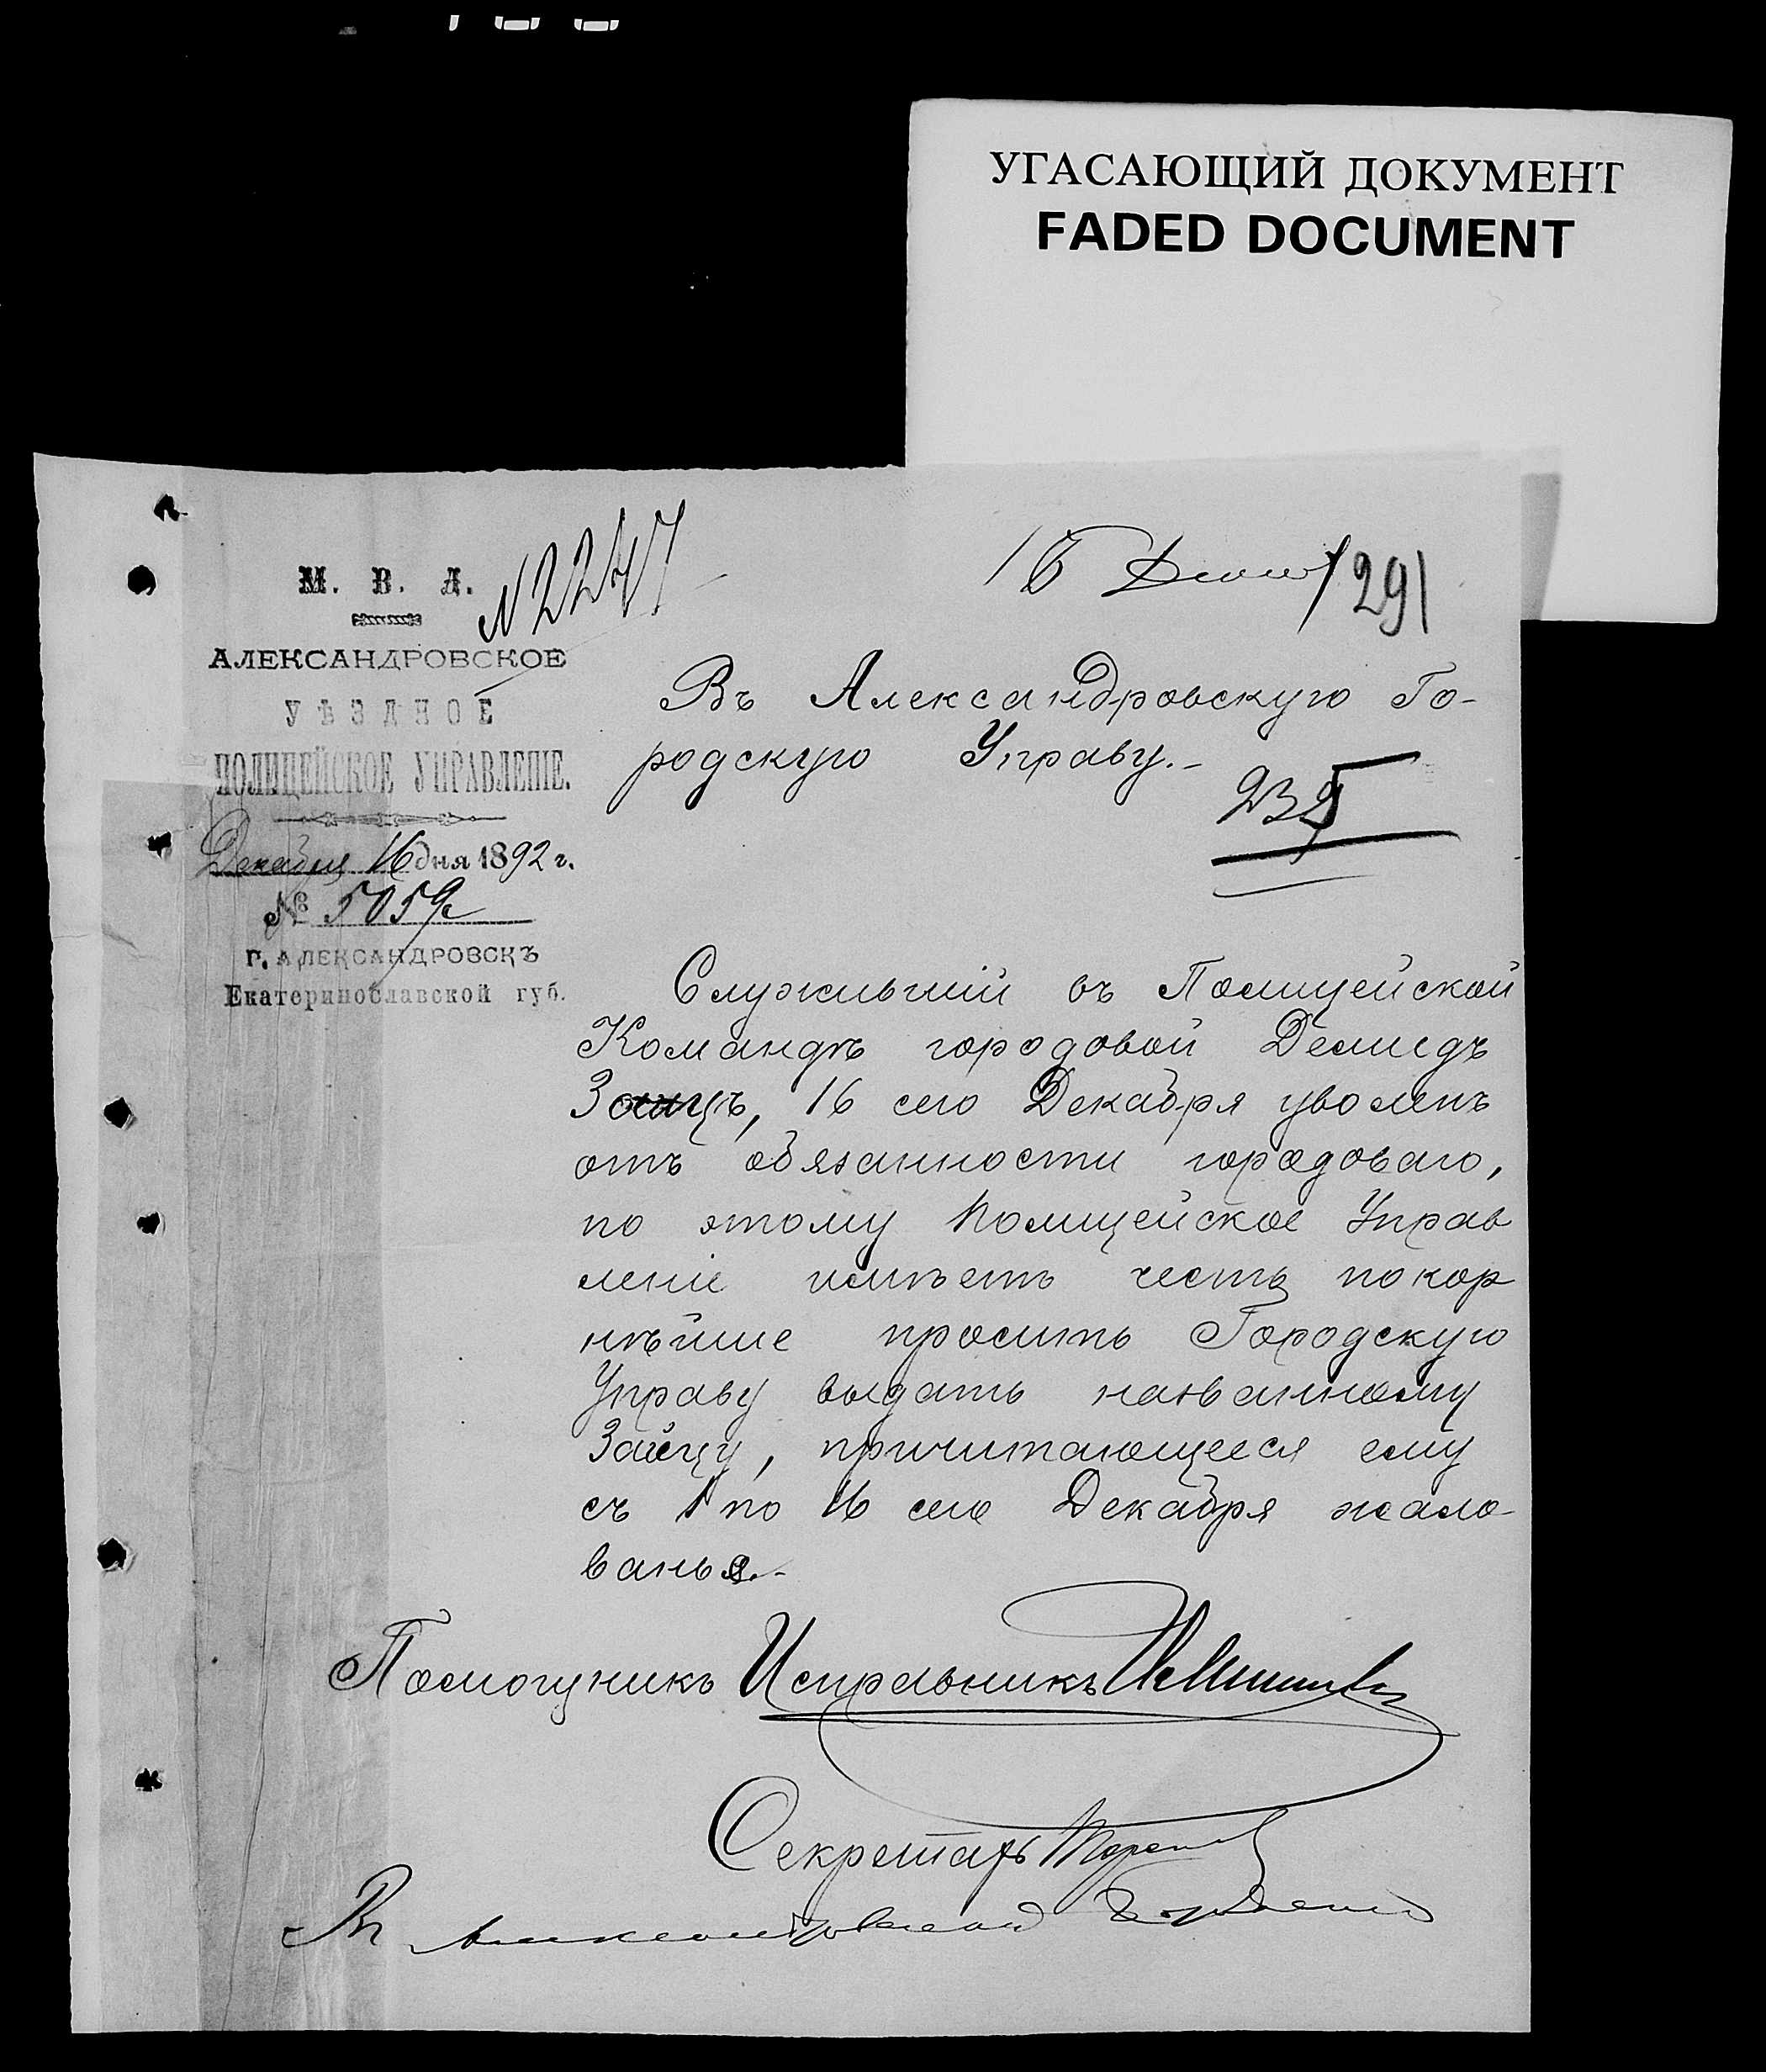 УГАСАЮЩИЙ ДОКУМЕНТ
FADED DOCUMENT
М. В. Д.
АЛЕКСАНДРОВСКОЕ
УѢЗДНОЕ
ПОЛИЦЕЙСКОЕ УПРАВЛЕНІЕ.
Декабря 16 дня 1892 г.
№ 5059
Г. АЛЕКСАНДРОВСКЪ
Екатеринославской губ.
16
291
Въ Александровскую Го-
родскую Управу.-
Служившій въ Полицейской
Командѣ городовой Демидъ
Заицъ, 16 сего Декабря уволенъ
отъ обязанности городоваго,
по этому Полицейское Управ
леніе имѣетъ честь покор
нѣйше просить Городскую
Управу выдать названному
Зайцу, причитающееся ему
съ 1 по 16 сего Декабря жало-
ванье.-
Помощникъ Исправникъ
Секретарь